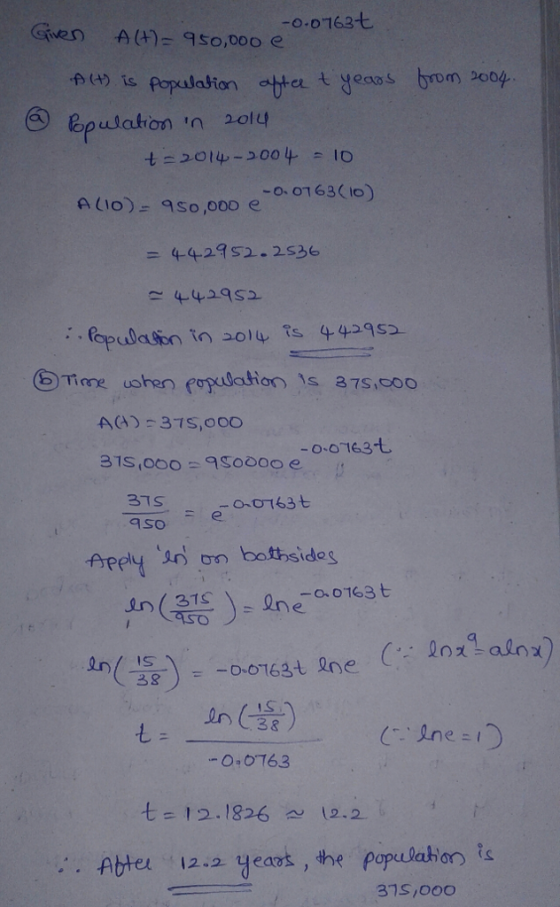 Given A(t) = 950,000 e^-0.0763t
A(t) is population after t years from 2004.
ⓐ Population in 2014
t = 2014 - 2004 = 10
A(10) = 950,000 e^-0.0763(10)
= 442952.2536
≃ 442952
∴ Population in 2014 is 442952
ⓑ Time when population is 375,000
A(t) = 375,000
375,000 = 950000 e^-0.0763t
375/950 = e^-0.0763t
Apply 'ln' on bothsides
ln(375/950) = lne^-0.0763t
ln(15/38) = -0.0763t lne (∵ lnx^a = alnx)
t = ln(15/38)/-0.0763 (∵ lne = 1)
t = 12.1826 ≃ 12.2
∴ After 12.2 years, the population is
375,000